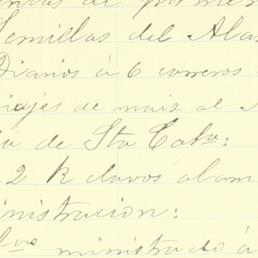 de
Semillas del
Diarios á 6 correros
viajes de mais al
de Sta Cata:
2 K clavos alam
nistracion:
ministrado á